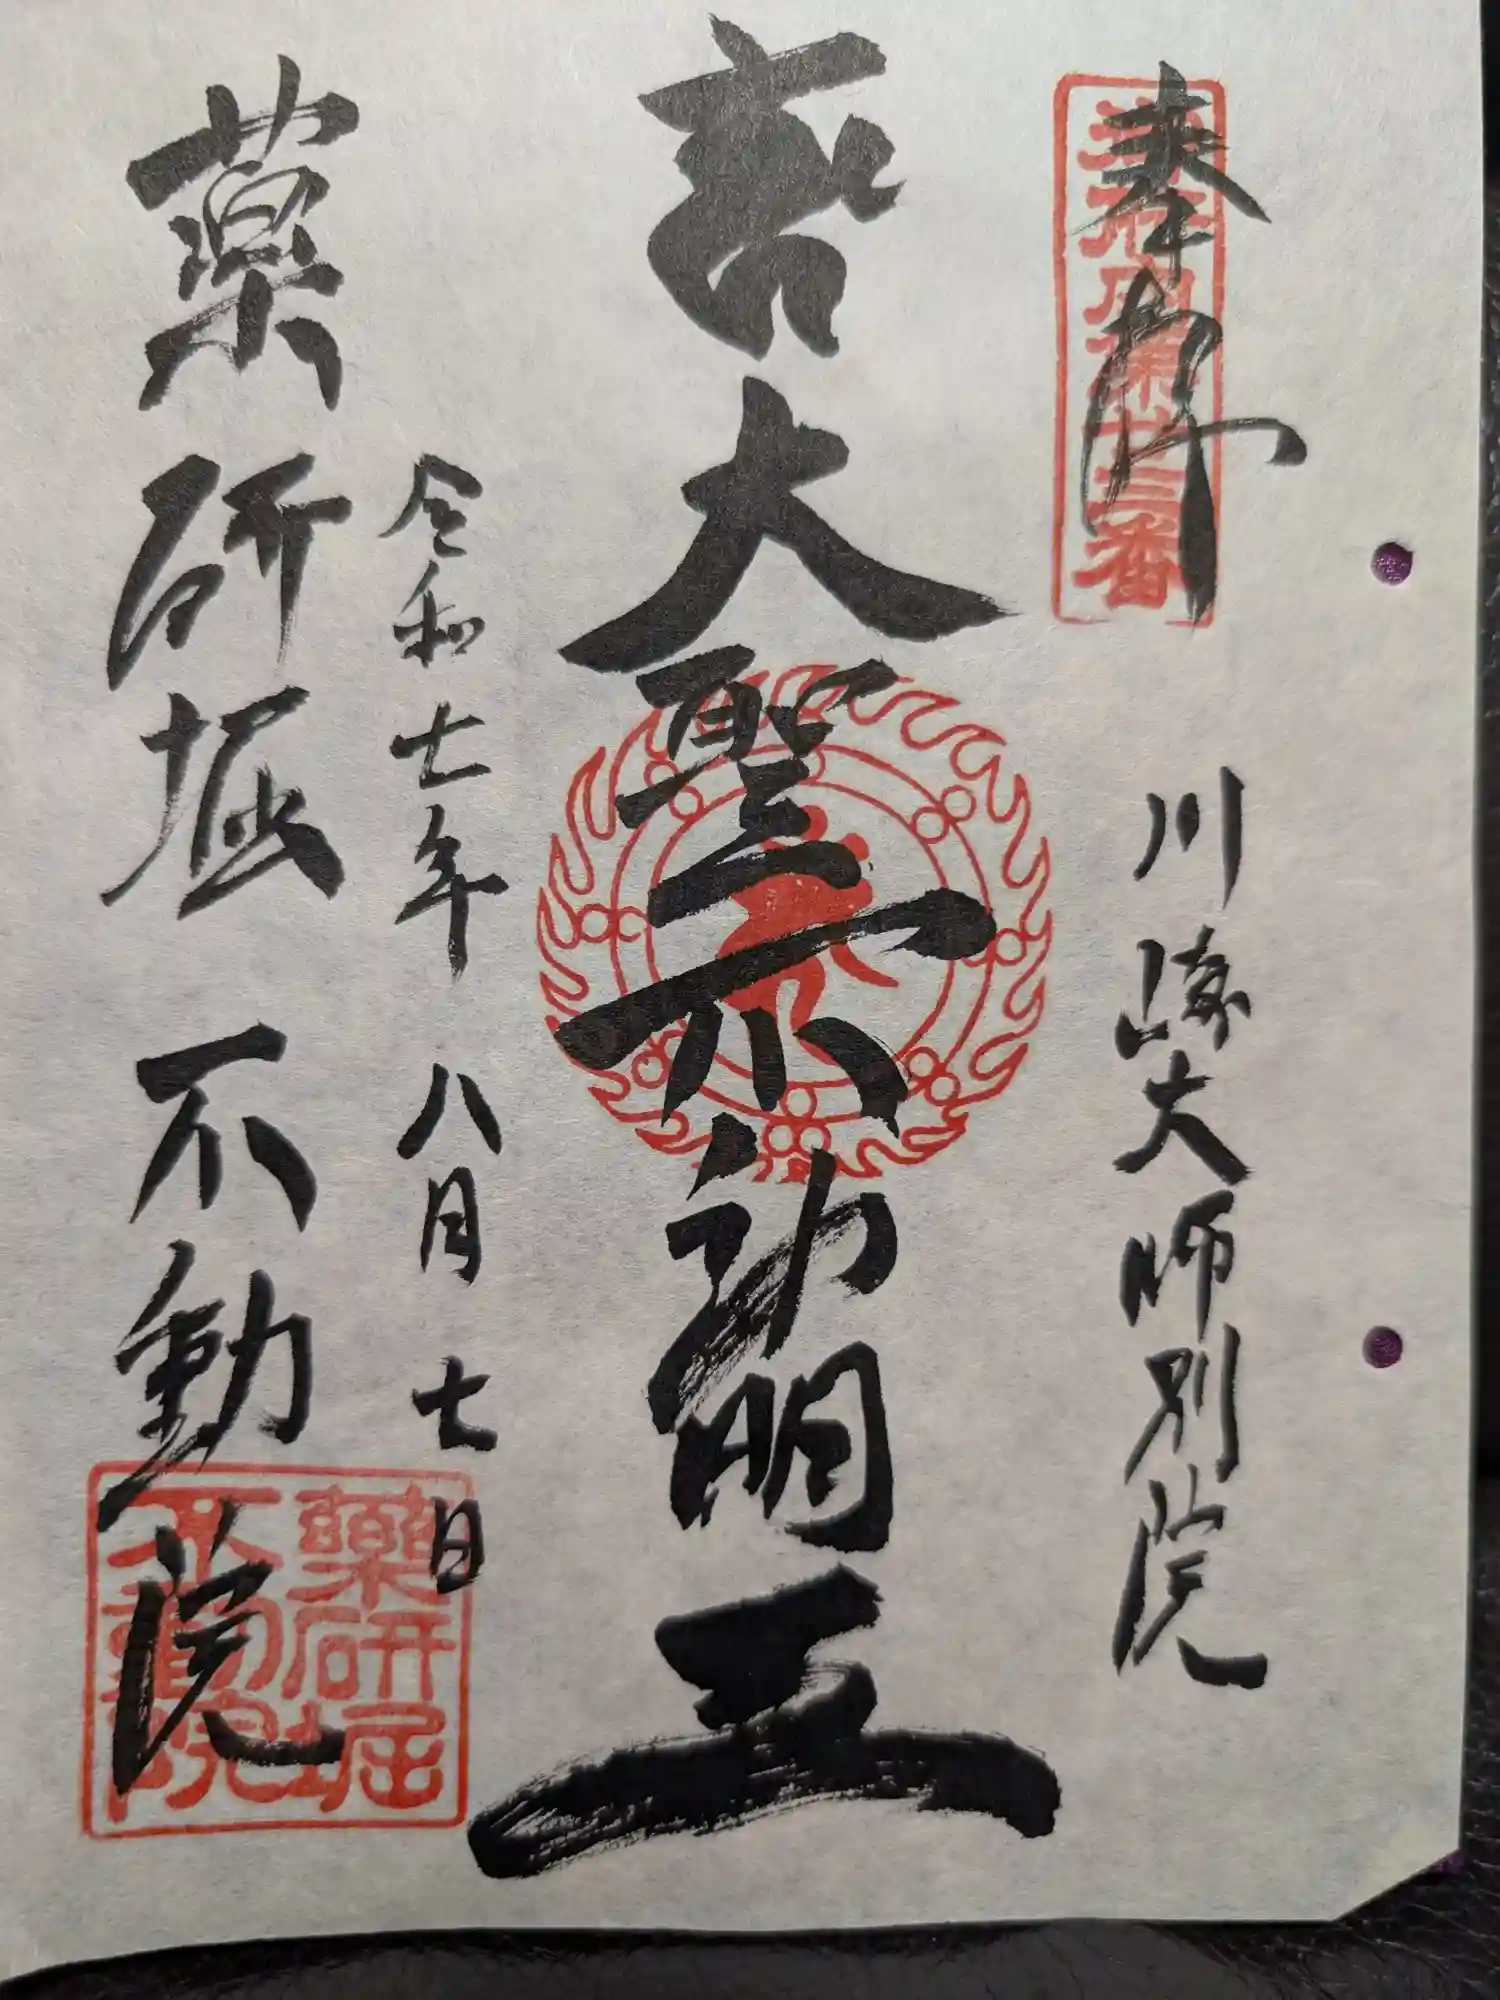 奉拝
川崎大師別院
大聖不動明王
令和七年八月七日
薬研堀不動院
薬研堀
不動院